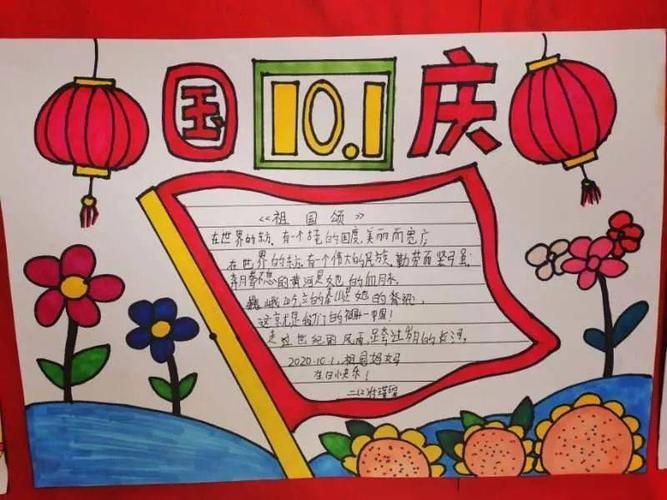 国 10.1 庆
《祖国颂》
在世界的东方,有一个古老的国度,美丽而宽广
在世界的东方,有一个伟大的民族,勤劳而坚强
奔腾不息的黄河是她的血脉
巍峨屹立的泰山是她的脊梁
这就是我们的祖国—中国!
走过世纪的风雨,跨过岁月的长河。
2020.10.1.祖国妈妈
生日快乐!